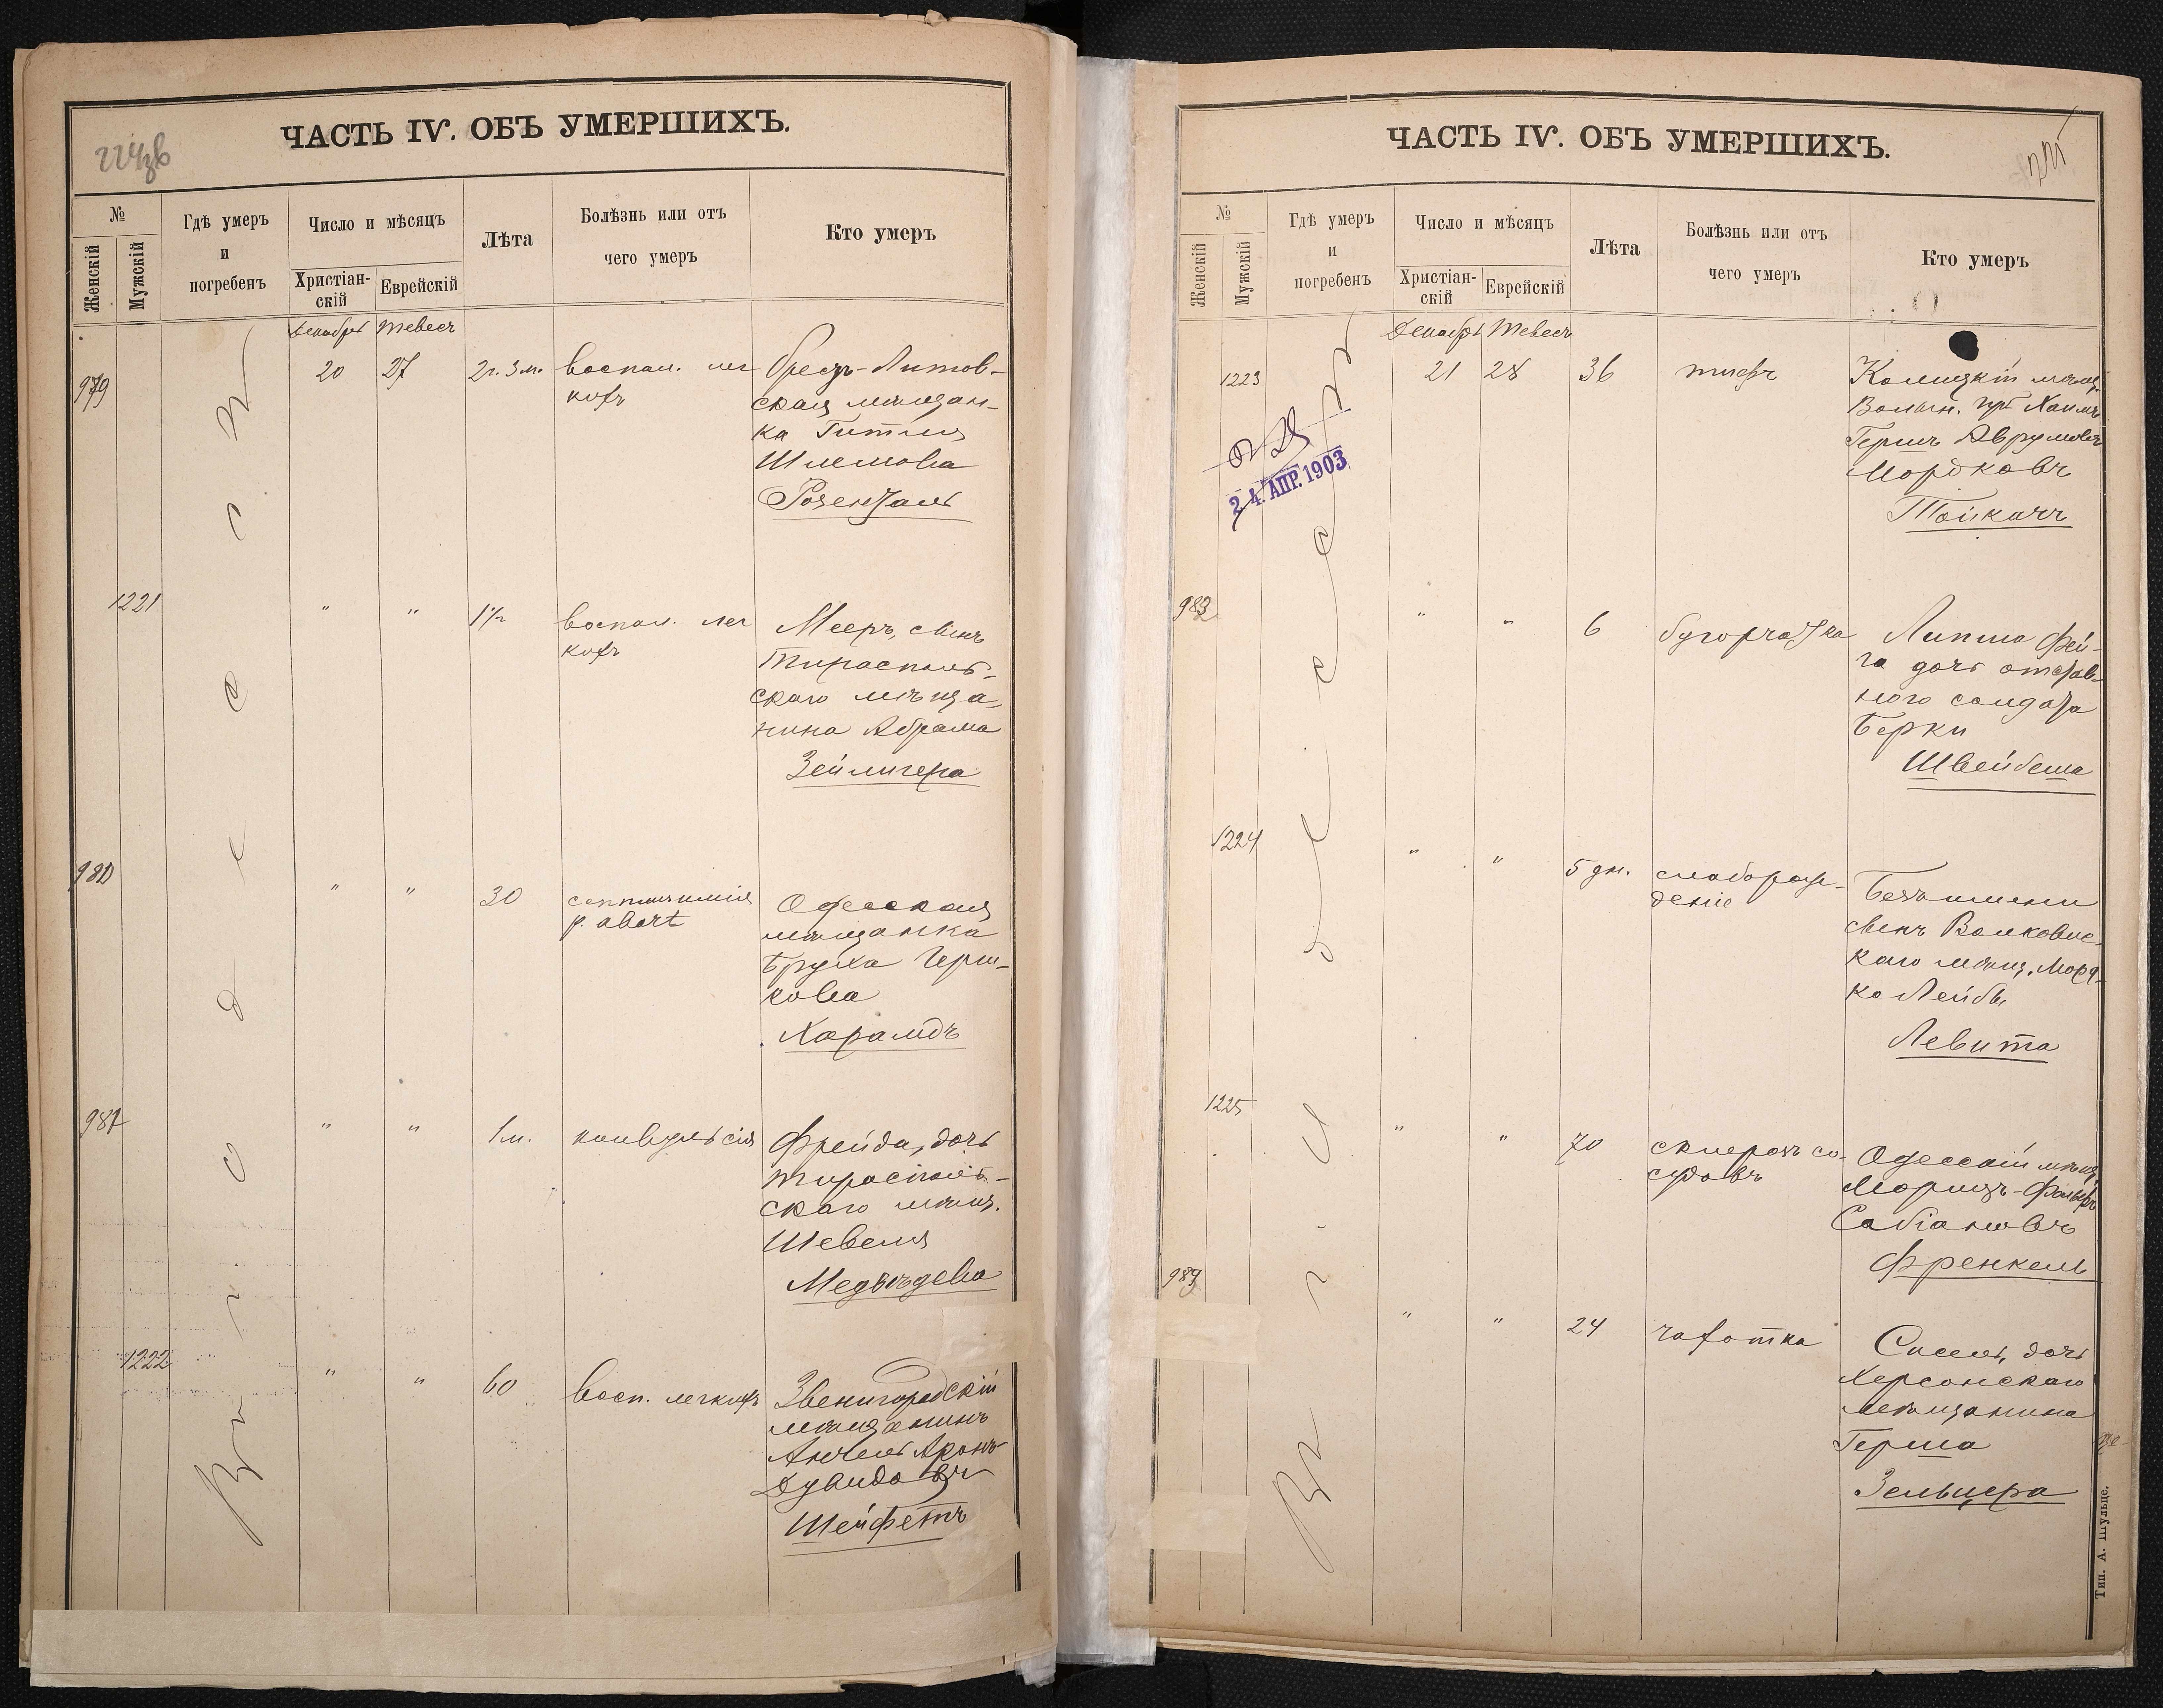 224об
ЧАСТЬ IV. ОБЪ УМЕРШИХЪ.
№
Женскій
Мужскій
Гдѣ умеръ
и
погребенъ
Число и мѣсяцъ
Христіан-
скій
Еврейскій
Лѣта
Болѣзнь или отъ
чего умеръ
Кто умеръ
Декабрь Тевесъ
Въ г. Одессѣ
979 20 27 2г. 3м. воспал. лег
кихъ
Брестъ-Литов-
ская мѣщан-
ка Гитля
Шлемова
Розенталь
1221 " " 1½ воспал. лег
кихъ
Мееръ, сынъ
Тирасполь-
скаго мѣща-
нина Абрама
Зейлигера
980 " " 30 септицимія
p. abort
Одесская
мѣщанка
Бруха Герш-
кова
981 " " 1м. конвульсія
Фрейда, дочь
Тирасполь-
скаго мѣщ.
Шевеля
Медвѣдева
1222 " " 60 восп. легкихъ
Звенигородскій
мѣщанинъ
Анчель Аронъ
Дувидовъ
Шейфетъ
ЧАСТЬ IV. ОБЪ УМЕРШИХЪ.
225
№
Женскій
Мужскій
Гдѣ умеръ
и
погребенъ
Число и мѣсяцъ
Христіан-
скій
Еврейскій
Лѣта
Болѣзнь или отъ
чего умеръ
Кто умеръ
Декабрь Тевесъ
Въ г. Одессѣ
1223 21 28 36 тифъ
мѣщ.
Волын. губ. Хаимъ
Гершъ Аврумовъ
Мордковъ
Тойкачъ
24. АПР. 1903
982 " " 6 бугорчатка
Липша Фей-
га дочь отстав-
ного солдата
Берки
Швейбеша
1224 " " 5 дн. слаборож-
деніе
Безъ имени
сынъ Волковыс-
каго мѣщ. Морд-
ко Лейбы
Левита
1225 " " 70 склерозъ со-
судовъ
Одесскій мѣщ.
Морицъ-
Сабіановъ
Френкель
983 " " 24 чахотка
Сисель, дочь
Херсонскаго
мѣщанина
Герша
Зельцера
Тип. А. Шульце.